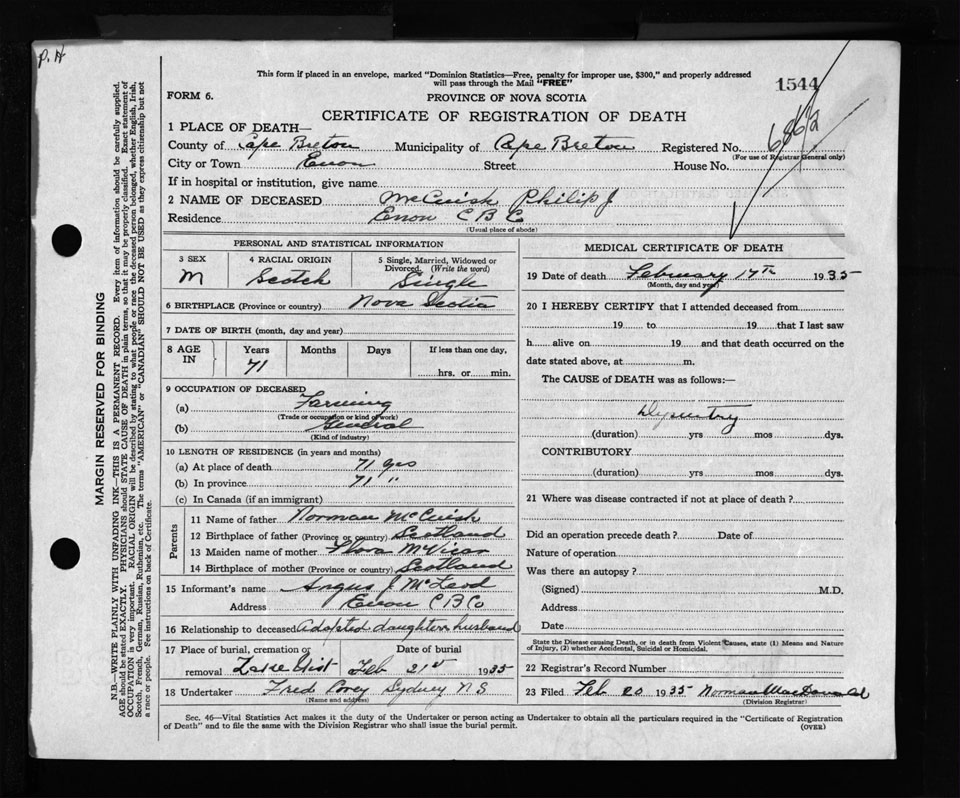 P. H
This form if placed in an envelope, marked "Dominion Statistics—Free, penalty for improper use, $300," and properly addressed
will pass through the Mail "FREE"
1544
FORM 6.
PROVINCE OF NOVA SCOTIA
CERTIFICATE OF REGISTRATION OF DEATH
1 PLACE OF DEATH—
County of Cape Breton Municipality of Cape Breton Registered No.
(For use of Registrar General only)
City or Town Enon Street House No.
If in hospital or institution, give name
2 NAME OF DECEASED McCuish Philip J
Residence Enon C B C
(Usual place of abode)
PERSONAL AND STATISTICAL INFORMATION
3 SEX 4 RACIAL ORIGIN 5 Single, Married, Widowed or Divorced. (Write the word)
M Scotch Single
6 BIRTHPLACE (Province or country) Nova Scotia
7 DATE OF BIRTH (month, day and year)
8 AGE IN Years Months Days If less than one day,
71 hrs. or min.
9 OCCUPATION OF DECEASED
(a) Farming
(Trade or occupation or kind of work)
(b) General
(Kind of industry)
10 LENGTH OF RESIDENCE (in years and months)
(a) At place of death 71 yrs
(b) In province 71 "
(c) In Canada (if an immigrant)
Parents
11 Name of father Norman McCuish
12 Birthplace of father (Province or country) Scotland
13 Maiden name of mother Flora McVicar
14 Birthplace of mother (Province or country) Scotland
15 Informant's name Angus J McLeod
Address Enon C B Co
16 Relationship to deceased Adopted daughters husband
17 Place of burial, cremation or removal Date of burial
Feb 21st 1935
18 Undertaker Fred Sydney N S
(Name and address)
MEDICAL CERTIFICATE OF DEATH
19 Date of death February 17th 1935
(Month, day and year)
20 I HEREBY CERTIFY that I attended deceased from
19 to 19 that I last saw
h alive on 19 and that death occurred on the
date stated above, at m.
The CAUSE of DEATH was as follows:—
Dysentry
(duration) yrs mos dys.
CONTRIBUTORY
(duration) yrs mos dys.
21 Where was disease contracted if not at place of death ?
Did an operation precede death ? Date of
Nature of operation
Was there an autopsy ?
(Signed) M.D.
Address
Date
State the Disease causing Death, or in death from Violent Causes, state (1) Means and Nature
of Injury, (2) whether Accidental, Suicidal or Homicidal.
22 Registrar's Record Number
23 Filed Feb 20 1935 Norman MacDonald
(Division Registrar)
Sec. 46—Vital Statistics Act makes it the duty of the Undertaker or person acting as Undertaker to obtain all the particulars required in the "Certificate of Registration
of Death" and to file the same with the Division Registrar who shall issue the burial permit.
(OVER)
MARGIN RESERVED FOR BINDING
N.B.—WRITE PLAINLY WITH UNFADING INK—THIS IS A PERMANENT RECORD. Every item of information should be carefully supplied.
AGE should be stated EXACTLY. PHYSICIANS should STATE CAUSE OF DEATH in plain terms, so that it may be properly classified. Exact statement of
OCCUPATION is very important. RACIAL ORIGIN will be described by stating to what people or race the deceased person belonged, whether English, Irish,
Scotch, French, German, Russian, Ruthenian, etc. The terms "AMERICAN" or "CANADIAN" SHOULD NOT BE USED as they express citizenship but not
a race or people. See instructions on back of Certificate.